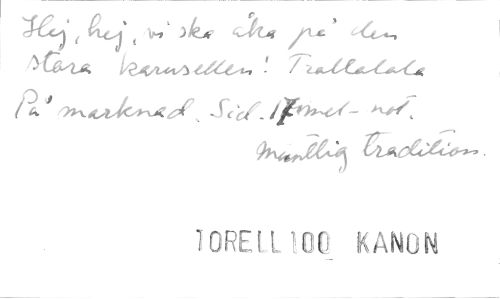 Hej, hej, vi ska åka på den
stora karusellen! Trallalala
På marknad. Sid. 17 omel-not.
muntlig tradition.
TORELL 100 KANON